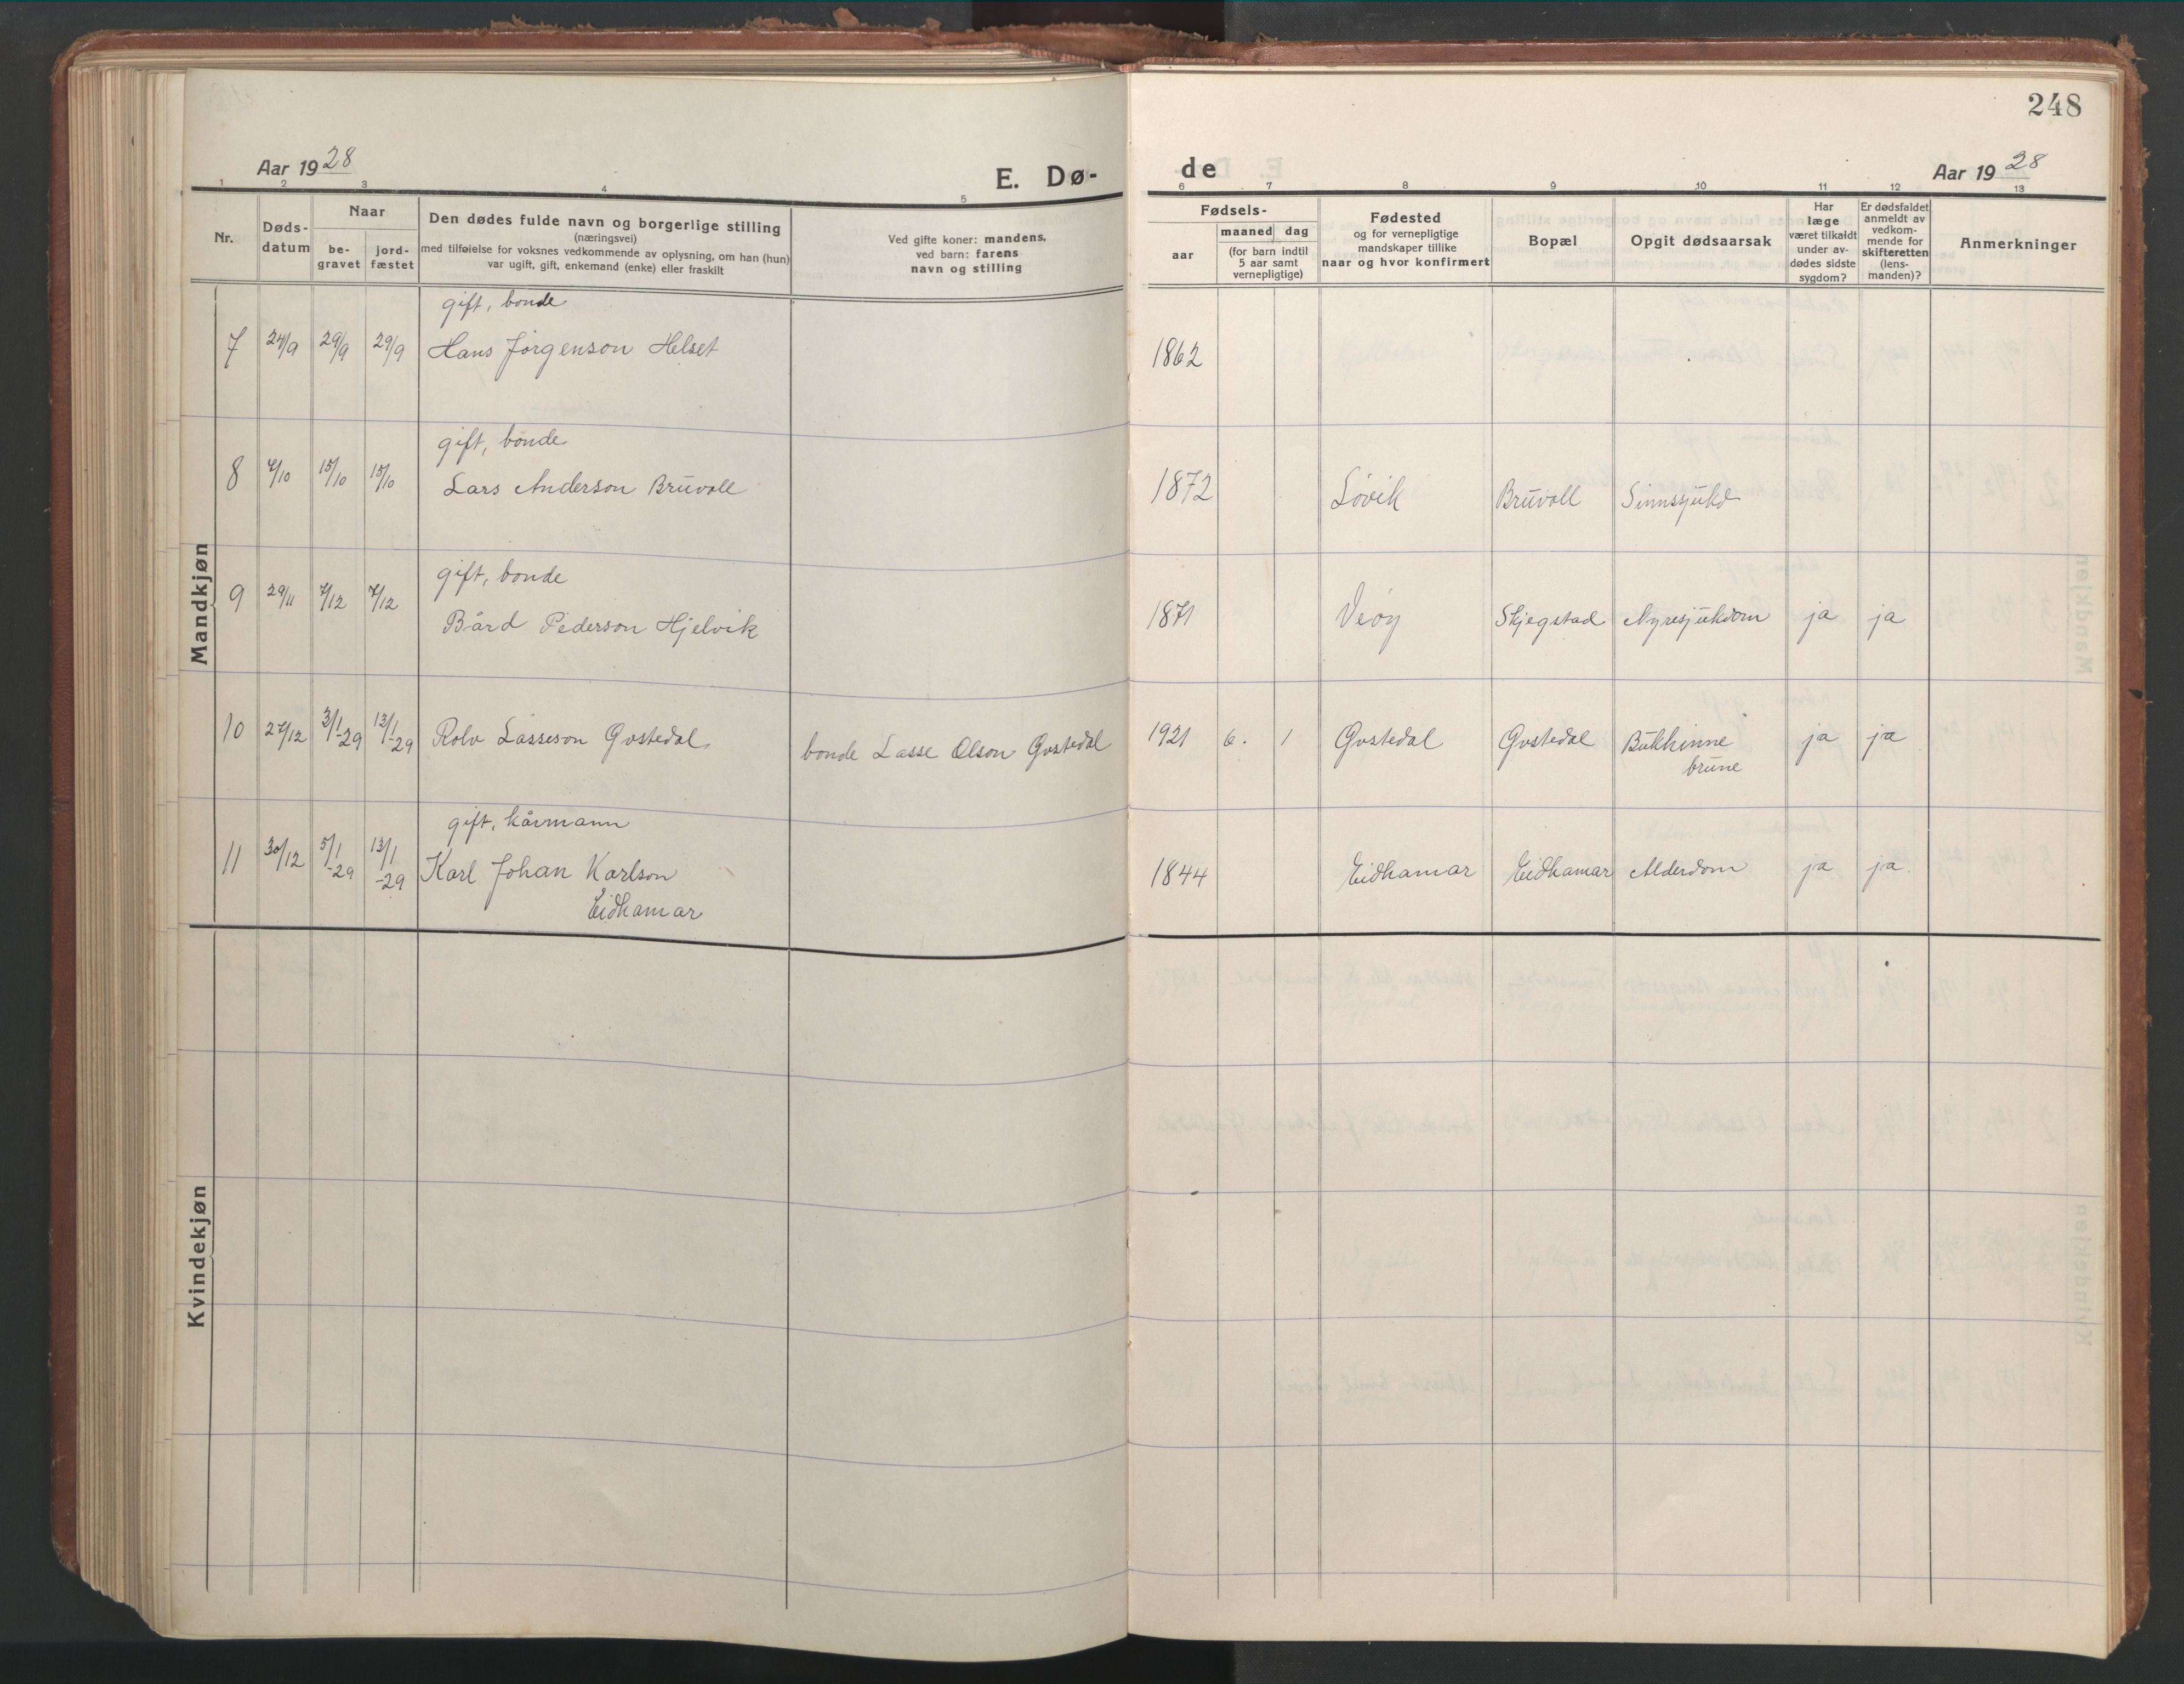 248
Aar 1928
E. Dø-
de
Aar 1928
1 2 3 4 5 6 7 8 9 10 11 12 13
Nr.
Døds-
datum
Naar
be-
gravet
jord-
fæstet
Den dødes fulde navn og borgerlige stilling
(næringsvei)
med tilføielse for voksnes vedkommende av oplysning, om han (hun)
var ugift, gift, enkemand (enke) eller fraskilt
Ved gifte koner: mandens,
ved barn: farens
navn og stilling
Fødsels-
aar
maaned dag
(for barn indtil
5 aar samt
vernepligtige)
Fødested
og for vernepligtige
mandskaper tillike
naar og hvor konfirmert
Bopæl
Opgit dødsaarsak
Har
læge
været tilkaldt
under av-
dødes sidste
sygdom?
Er dødsfaldet
anmeldt av
vedkom-
mende for
skifteretten
(lens-
manden)?
Anmerkninger
Mandkjøn
gift, bonde
7 24/9 29/9 29/9 Hans Jørgenson Helset 1862
gift, bonde
8 7/10 15/10 15/10 Lars Anderson Bruvoll 1872 Løvik Bruvoll Sinnssjukd
gift, bonde
9 29/11 7/12 7/12 Bård Pederson Hjelvik 1871 Veøy Skjegstad Nyresjukdom ja ja
10 27/12 3/1-29 13/1-29 Rolv Lasseson Gustedal bonde Lasse Olson Gustedal 1921 6. 1 Gustedal Gustedal Bukhinne ja ja
brune
gift, kårmann
11 30/12 5/1-29 13/1-29 Karl Johan Karlson 1844 Eidhamar Eidhamar Alderdom ja ja
Eidhamar
Kvindekjøn